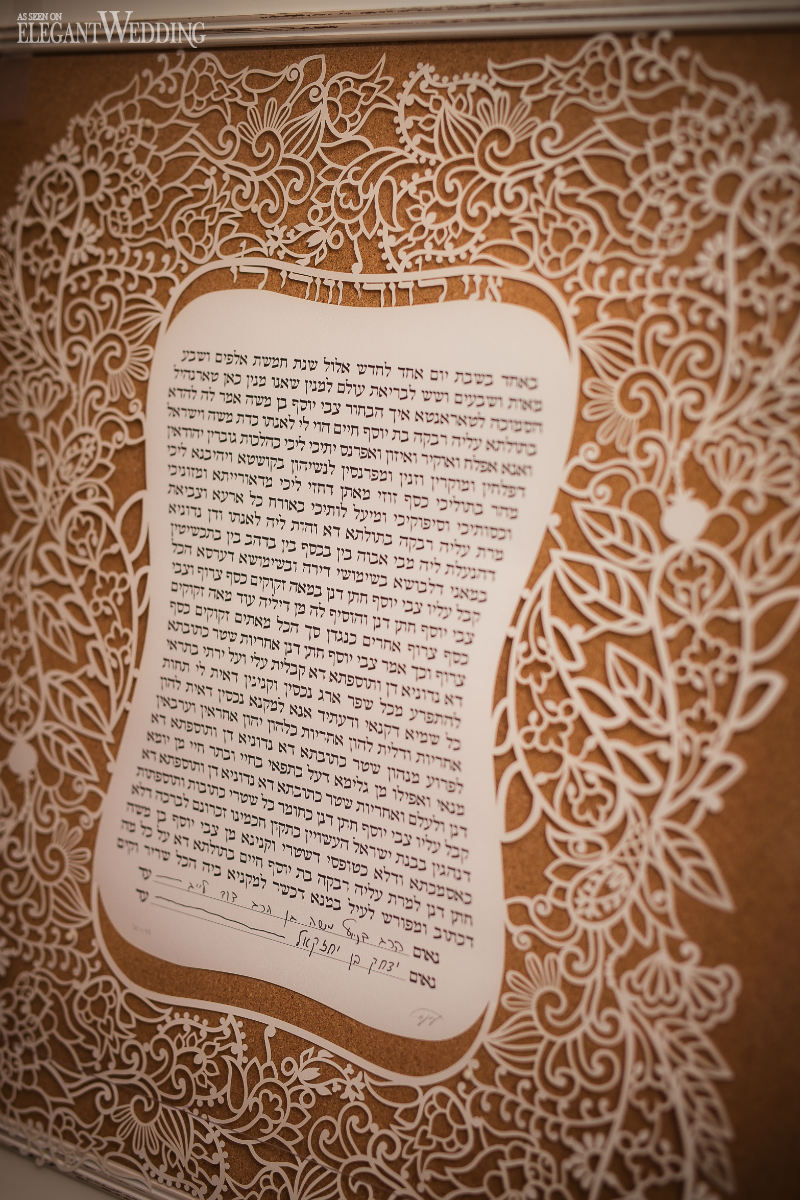 AS SEEN ON
ELEGANTWEDDING
אני לדודי ודודי לי
באחד בשבת יום אחד לחדש אלול שנת חמשת אלפים ושבע
מאות ושבעים ושש לבריאת עולם למנין שאנו מנין כאן טארנהיל
הסמוכה לטאראנטא איך הבחור צבי יוסף בן משה אמר לה להדא
בתולתא עליה רבקה בת יוסף חיים הוי לי לאנתו כדת משה וישראל
ואנא אפלח ואוקיר ואיזון ואפרנס יתיכי ליכי כהלכות גוברין יהודאין
דפלחין ומוקרין וזנין ומפרנסין לנשיהון בקושטא ויהיבנא ליכי
מהר בתוליכי כסף זוזי מאתן דחזי ליכי מדאורייתא ומזוניכי
וכסותיכי וסיפוקיכי ומיעל לותיכי כאורח כל ארעא וצביאת
מרת עליה רבקה בתולתא דא והות ליה לאנתו ודן נדוניא
דהנעלת ליה מבי אבוה בין בכסף בין בדהב בין בתכשיטין
במאני דלבושא בשימושי דירה ובשימושא דערסא הכל
קבל עליו צבי יוסף חתן דנן במאה זקוקים כסף צרוף וצבי
צבי יוסף חתן דנן והוסיף לה מן דיליה עוד מאה זקוקים
כסף צרוף אחרים כנגדן סך הכל מאתים זקוקים כסף
צרוף וכך אמר צבי יוסף חתן דנן אחריות שטר כתובתא
דא נדוניא דן ותוספתא דא קבלית עלי ועל ירתי בתראי
להתפרע מכל שפר ארג נכסין וקנינין דאית לי תחות
כל שמיא דקנאי ודעתיד אנא למקנא נכסין דאית להון
אחריות ודלית להון אחריות כלהון יהון אחראין וערבאין
לפרוע מנהון שטר כתובתא דא נדוניא דן ותוספתא דא
מנאי ואפילו מן גלימא דעל כתפאי בחיי ובתר חיי מן יומא
דנן ולעלם ואחריות שטר כתובתא דא נדוניא דן ותוספתא דא
קבל עליו צבי יוסף חתן דנן כחומר כל שטרי כתובות ותוספתות
דנהגין בבנת ישראל העשויין כתקון חכמינו זכרונם לברכה דלא
כאסמכתא ודלא כטופסי דשטרי וקנינא מן צבי יוסף בן משה
חתן דנן למרת עליה רבקה בת יוסף חיים בתולתא דא על כל מה
דכתוב ומפורש לעיל במנא דכשר למקניא ביה הכל שריר וקים
נאום הרב משה בן הרב דוד עד
נאום יצחק בן יחזקאל עד